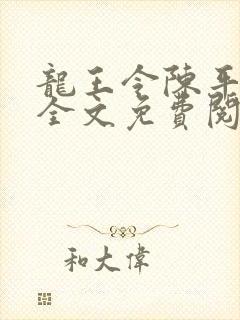 龍王令陳平
全文免費閱
和大偉